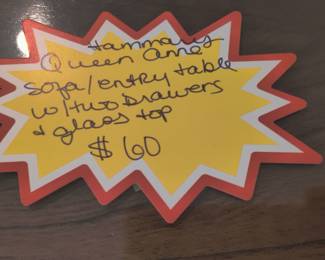 Tammary
Queen Anne
Sofa/entry table
w/two drawers
+ glass top
$60